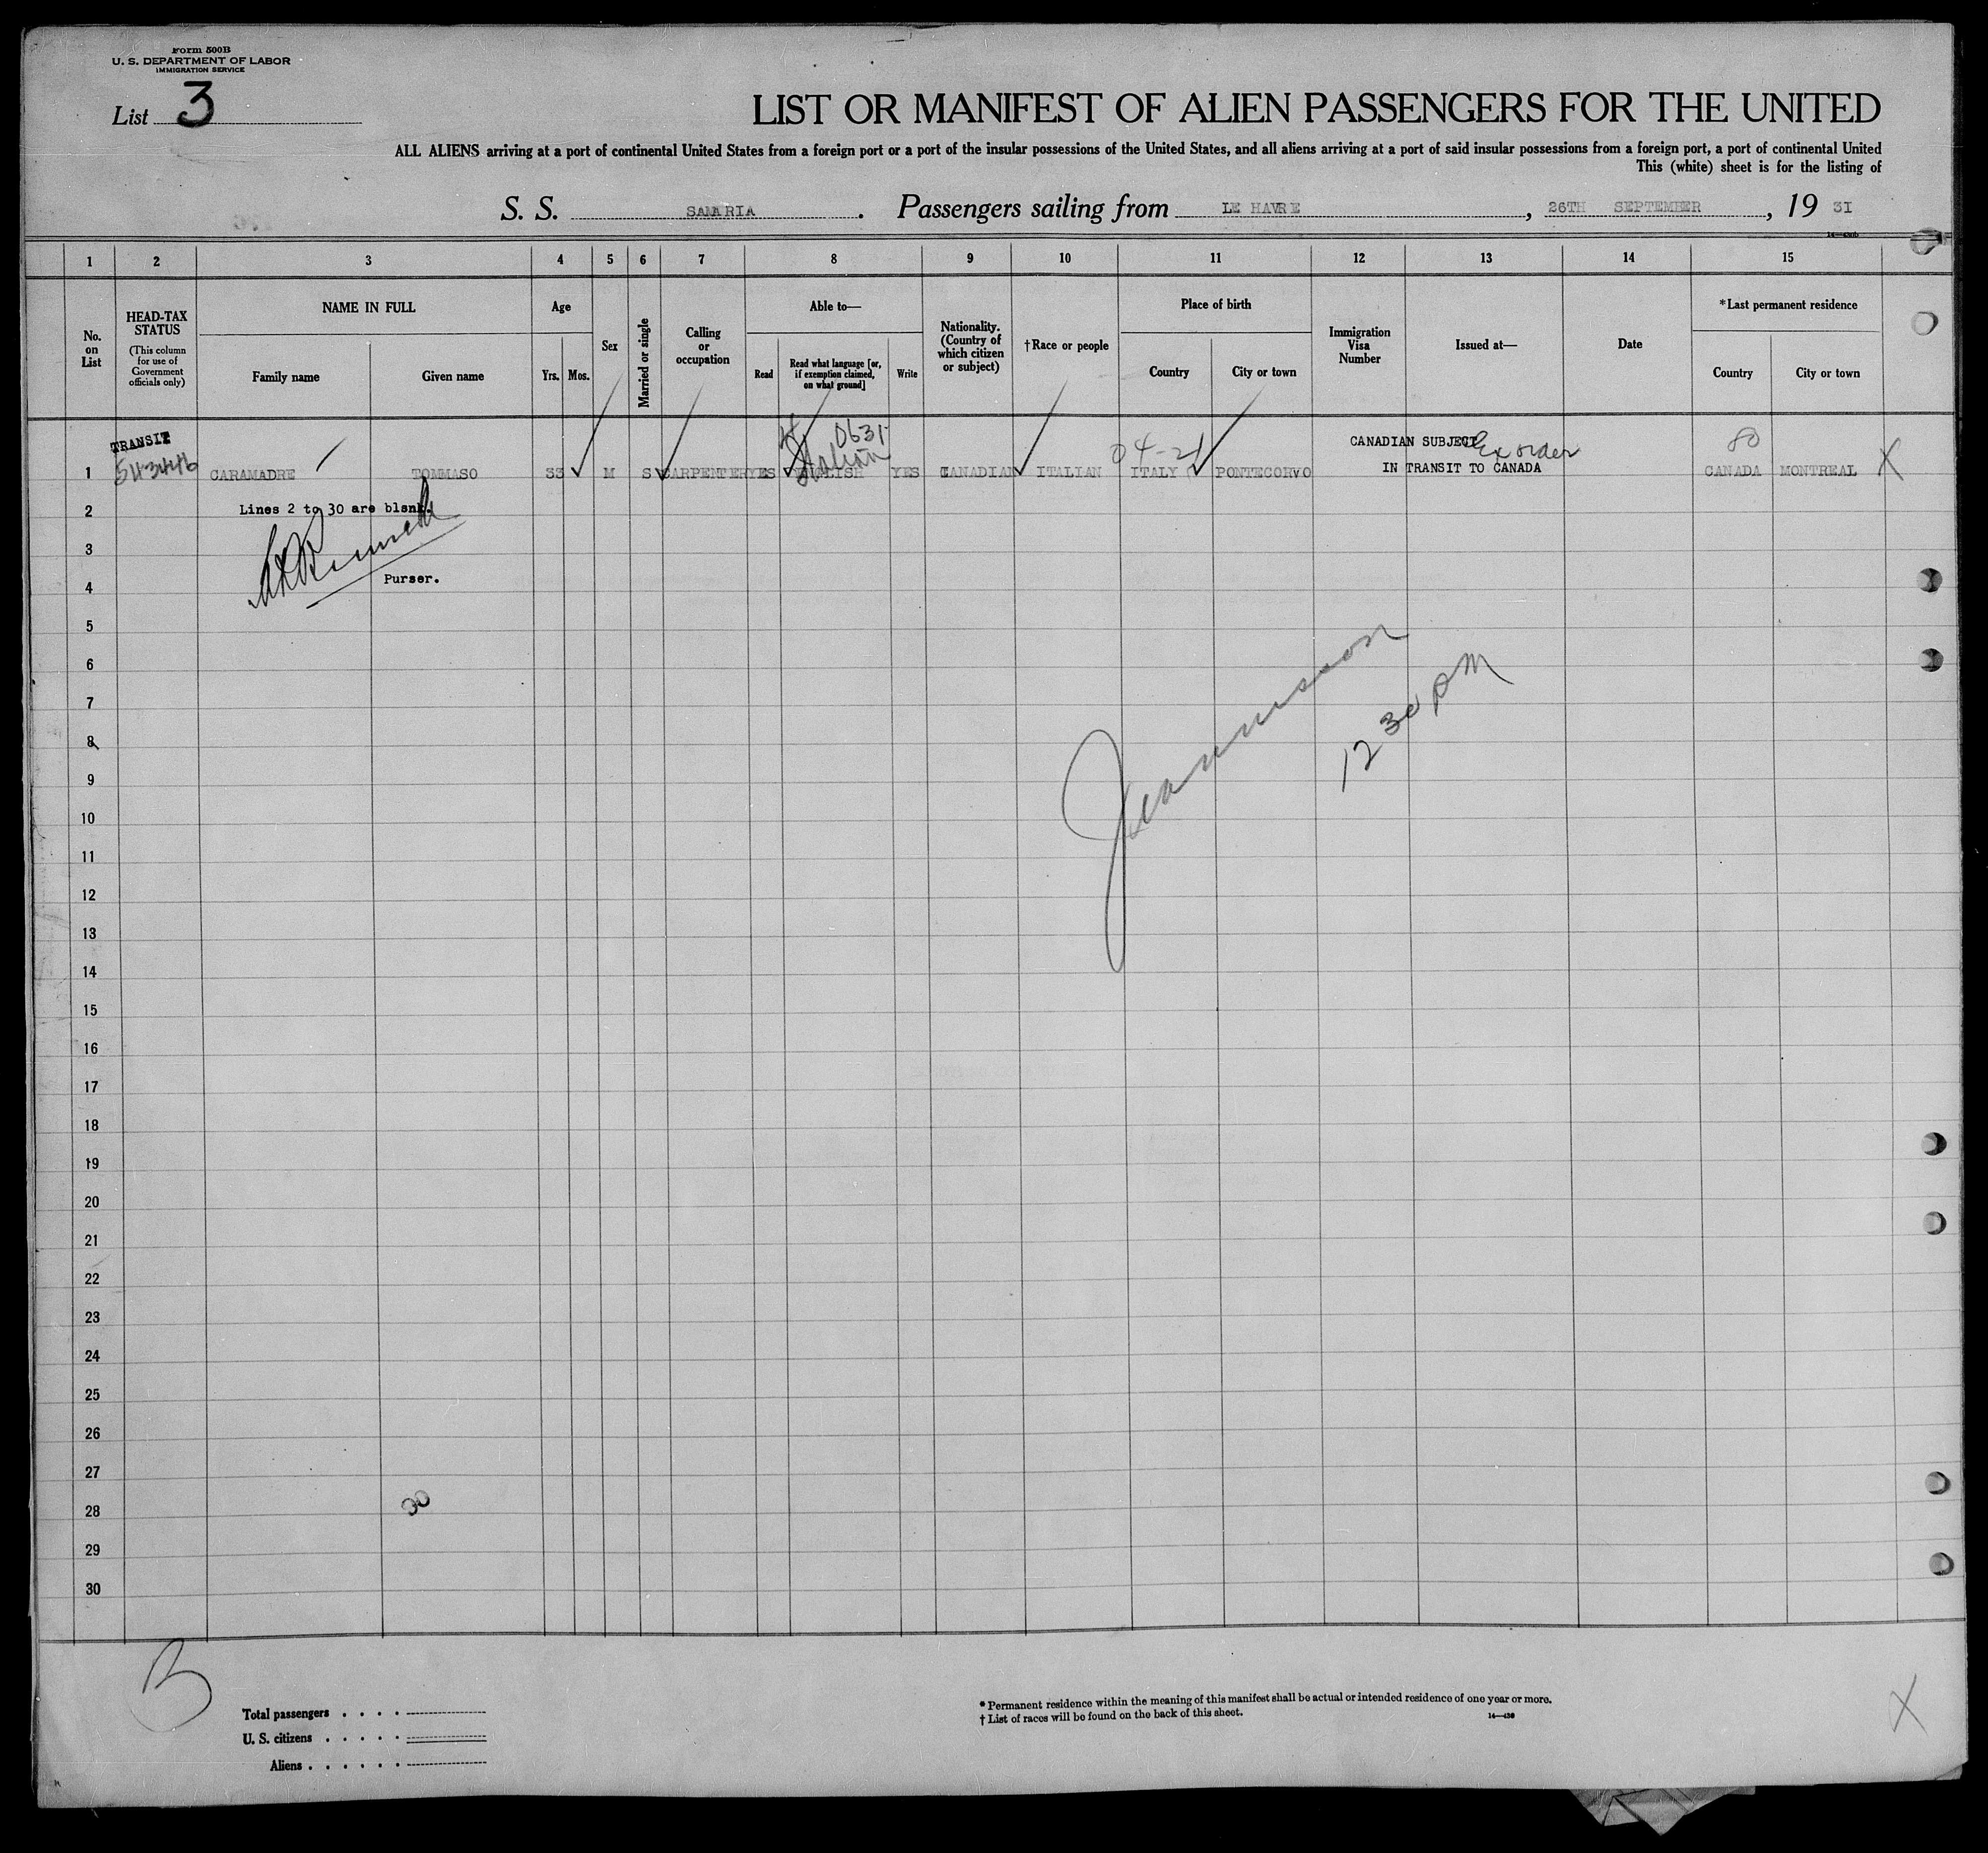 Form 500B
U. S. DEPARTMENT OF LABOR
IMMIGRATION SERVICE
List 3
LIST OR MANIFEST OF ALIEN PASSENGERS FOR THE UNITED
ALL ALIENS arriving at a port of continental United States from a foreign port or a port of the insular possessions of the United States, and all aliens arriving at a port of said insular possessions from a foreign port, a port of continental United
This (white) sheet is for the listing of
S. S. SAMARIA. Passengers sailing from LE HAVRE, 26TH SEPTEMBER, 19 31
1 2 3 4 5 6 7 8 9 10 11 12 13 14 15
No. on List
HEAD-TAX STATUS
(This column for use of Government officials only)
NAME IN FULL
Family name Given name
Age
Yrs. Mos.
Sex
Married or single
Calling or occupation
Able to—
Read
Read what language [or, if exemption claimed, on what ground]
Write
Nationality. (Country of which citizen or subject)
†Race or people
Place of birth
Country City or town
Immigration Visa Number
Issued at—
Date
*Last permanent residence
Country City or town
TRANSIT 0631 04-21 CANADIAN SUBJECT Ex order 80
1 CARAMADRE TOMMASO 33 M S CARPENTER YES ENGLISH Italian YES CANADIAN ITALIAN ITALY PONTECORVO IN TRANSIT TO CANADA CANADA MONTREAL X
2 Lines 2 to 30 are blank.
3
4 Purser.
5
6
7
8
9
10
11
12
13
14
15
16
17
18
19
20
21
22
23
24
25
26
27
28
29
30
12 30 PM
30
B
Total passengers
U. S. citizens
Aliens
* Permanent residence within the meaning of this manifest shall be actual or intended residence of one year or more.
† List of races will be found on the back of this sheet.
14—430
X